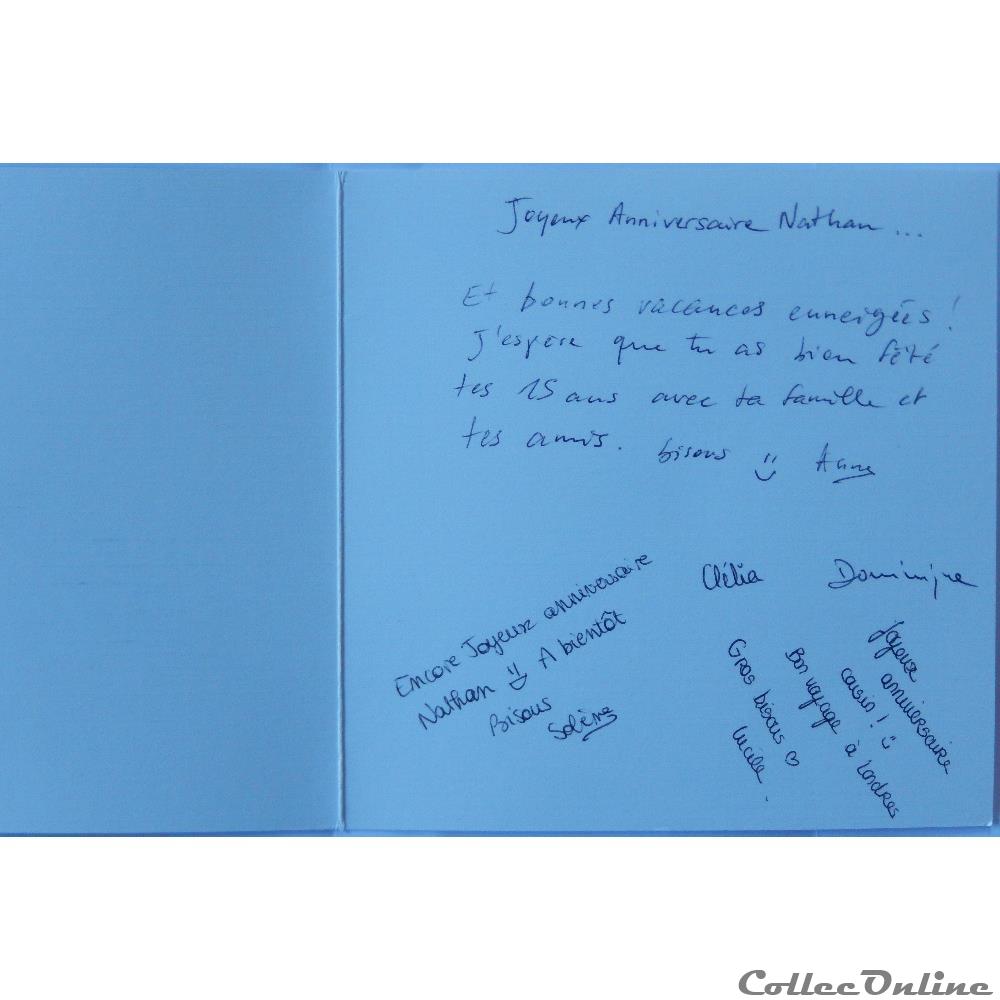 Joyeux Anniversaire Nathan ...
Et bonnes vacances enneigées !
J'espère que tu as bien fêté
tes 15 ans avec ta famille et
tes amis. bisous Anne
Clélia Dominique
Encore Joyeux anniversaire
Nathan A bientôt
Bisous
Solène
Joyeux
anniversaire
cousin !
Bon voyage à Londres
Gros bisous ♡
Lucile.
CollecOnline